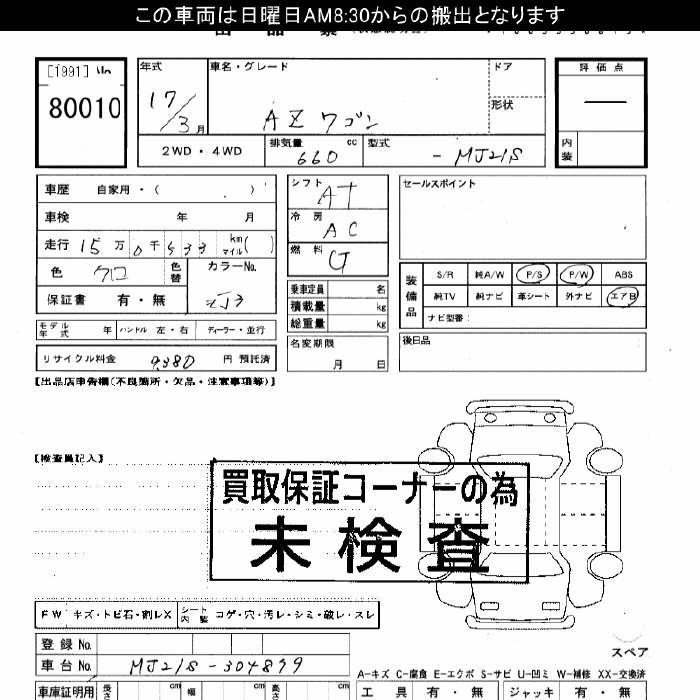 この車両は日曜日AM8:30からの搬出となります
[1991]
80010
年式
17/3月
車名・グレード
AZワゴン
ドア
形状
評価点
内装
2WD・4WD
排気量 660 cc
型式 -MJ21S
車歴 自家用・( )
車検 年 月
走行 15万0千533 km マイル( )
色 クロ 色替
カラーNo. ZJ3
保証書 有・無
シフト AT
冷房 AC
燃料 G
乗車定員 名
積載量 kg
総重量 kg
セールスポイント
装備品
S/R 純A/W P/S P/W ABS
純TV 純ナビ 革シート 外ナビ エアB
ナビ型番:
モデル年式 年 ハンドル 左・右 ディーラー・並行
名変期限 月 日
後日品
リサイクル料金 9,380 円 預託済
【出品店申告欄(不良箇所・欠品・注意事項等)】
【検査員記入】
買取保証コーナーの為
未検査
FW キズ・トビ石・割レX シート内装 コゲ・穴・汚レ・シミ・破レ・スレ
登録 No.
車台 No. MJ21S-304899
スペア
A-キズ C-腐食 E-エクボ S-サビ U-凹ミ W-補修 XX-交換済
車庫証明用 長さ cm 幅 cm 高さ cm
工具 有・無 ジャッキ 有・無